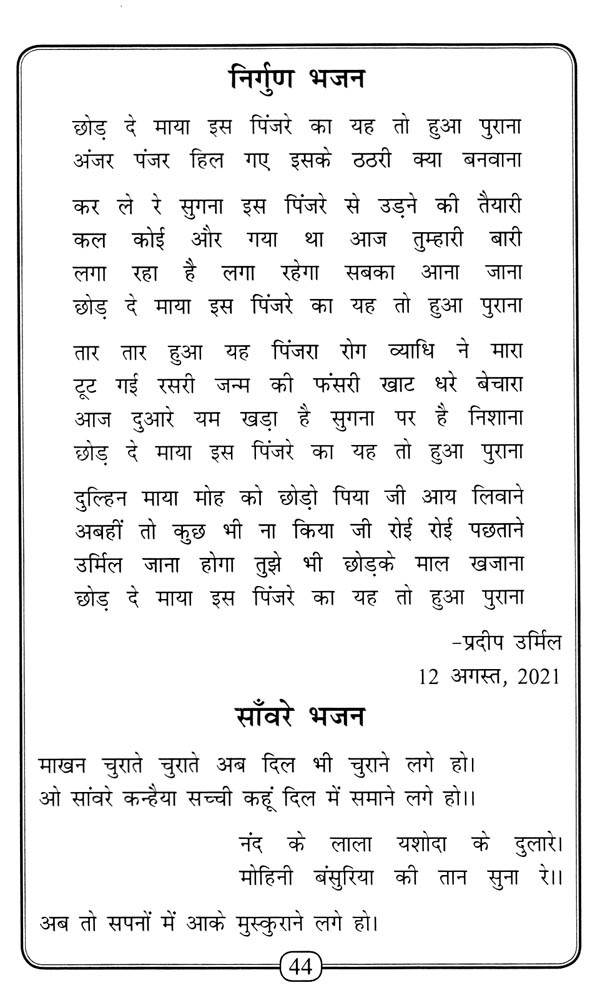 निर्गुण भजन
छोड़ दे माया इस पिंजरे का यह तो हुआ पुराना
अंजर पंजर हिल गए इसके ठठरी क्या बनवाना
कर ले रे सुगना इस पिंजरे से उड़ने की तैयारी
कल कोई और गया था आज तुम्हारी बारी
लगा रहा है लगा रहेगा सबका आना जाना
छोड़ दे माया इस पिंजरे का यह तो हुआ पुराना
तार तार हुआ यह पिंजरा रोग व्याधि ने मारा
टूट गई रसरी जन्म की फंसरी खाट धरे बेचारा
आज दुआरे यम खड़ा है सुगना पर है निशाना
छोड़ दे माया इस पिंजरे का यह तो हुआ पुराना
दुल्हिन माया मोह को छोड़ो पिया जी आय लिवाने
अबहीं तो कुछ भी ना किया जी रोई रोई पछताने
उर्मिल जाना होगा तुझे भी छोड़के माल खजाना
छोड़ दे माया इस पिंजरे का यह तो हुआ पुराना
-प्रदीप उर्मिल
12 अगस्त, 2021
साँवरे भजन
माखन चुराते चुराते अब दिल भी चुराने लगे हो।
ओ सांवरे कन्हैया सच्ची कहूं दिल में समाने लगे हो।।
नंद के लाला यशोदा के दुलारे।
मोहिनी बंसुरिया की तान सुना रे।।
अब तो सपनों में आके मुस्कुराने लगे हो।
44